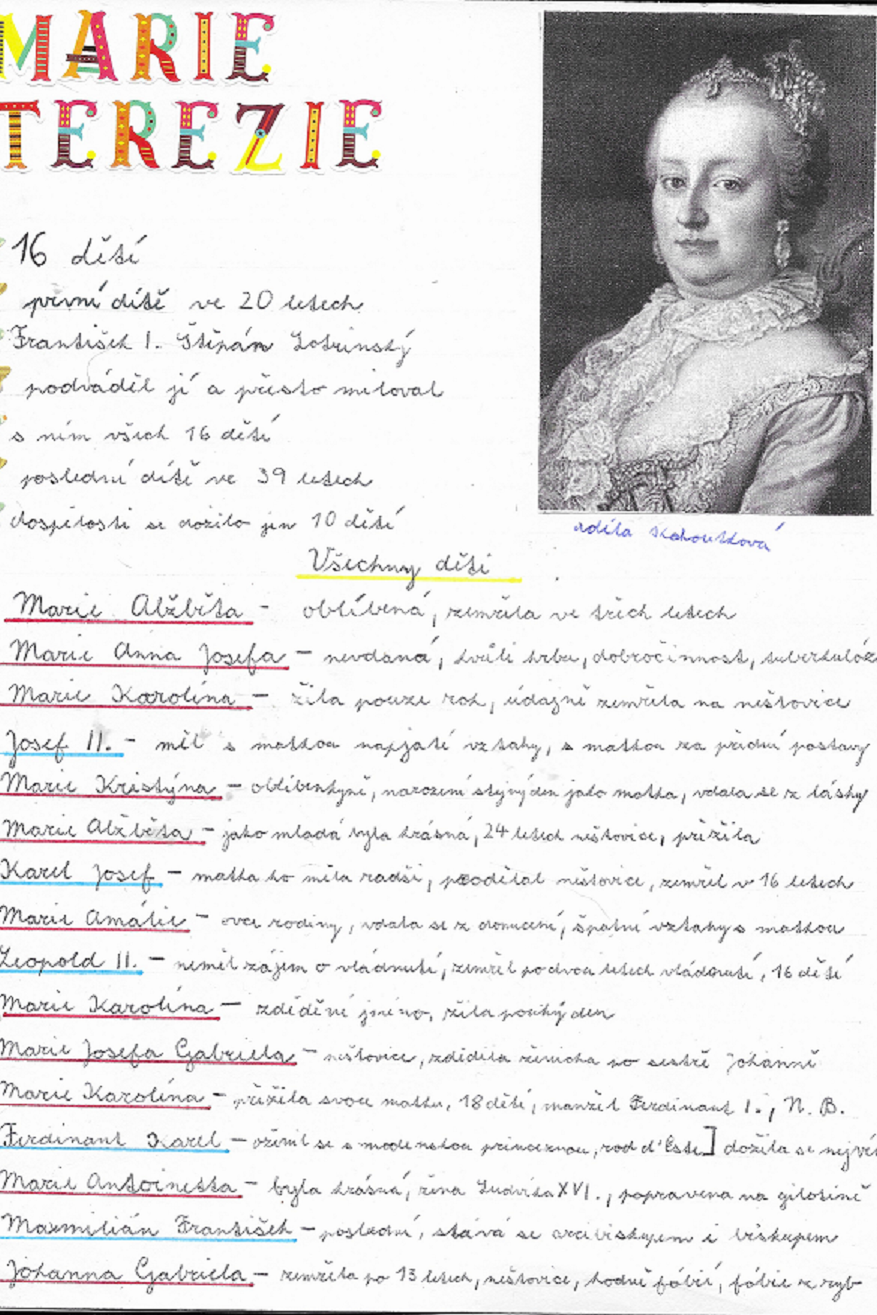 MARIE
TEREZIE
16 dětí
první dítě ve 20 letech
František I. Štěpán Lotrinský
podváděl jí a přesto miloval
s ním všech 16 dětí
poslední dítě ve 39 letech
dospělosti se dožilo jen 10 dětí
Adéla Kohoutková
Všechny děti
Marie Alžběta - oblíbená, zemřela ve třech letech
Marie Anna Josefa - nevdaná, kvůli hrbu, dobročinnost, tuberkulóz
Marie Karolína - žila pouze rok, údajně zemřela na neštovice
Josef II. - měl s matkou napjaté vztahy, s matkou za přední postavy
Marie Kristýna - oblíbenkyně, narození stejný den jako matka, vdala se z lásky
Marie Alžběta - jako mladá byla krásná, 24 letech neštovice, přežila
Karel Josef - matka ho měla radši, prodělal neštovice, zemřel v 16 letech
Marie Amálie - ovce rodiny, vdala se z donucení, špatné vztahy s matkou
Leopold II. - neměl zájem o vládnutí, zemřel po dvou letech vládnutí, 16 dětí
Marie Karolína - zděděné jméno, žila pouhý den
Marie Josefa Gabriela - neštovice, zdědila ženicha po sestře Johanně
Marie Karolína - přežila svou matku, 18 dětí, manžel Ferdinant I., N. B.
Ferdinant Karel - oženil se s modenskou princeznou, rod d'Este] dožila se nejvě
Marie Antoinetta - byla krásná, žena Ludvíka XVI., popravena na gilotině
Maxmilián František - poslední, stává se arcibiskupem i biskupem
Johanna Gabriela - zemřela po 13 letech, neštovice, hodně fóbií, fóbie z ryb